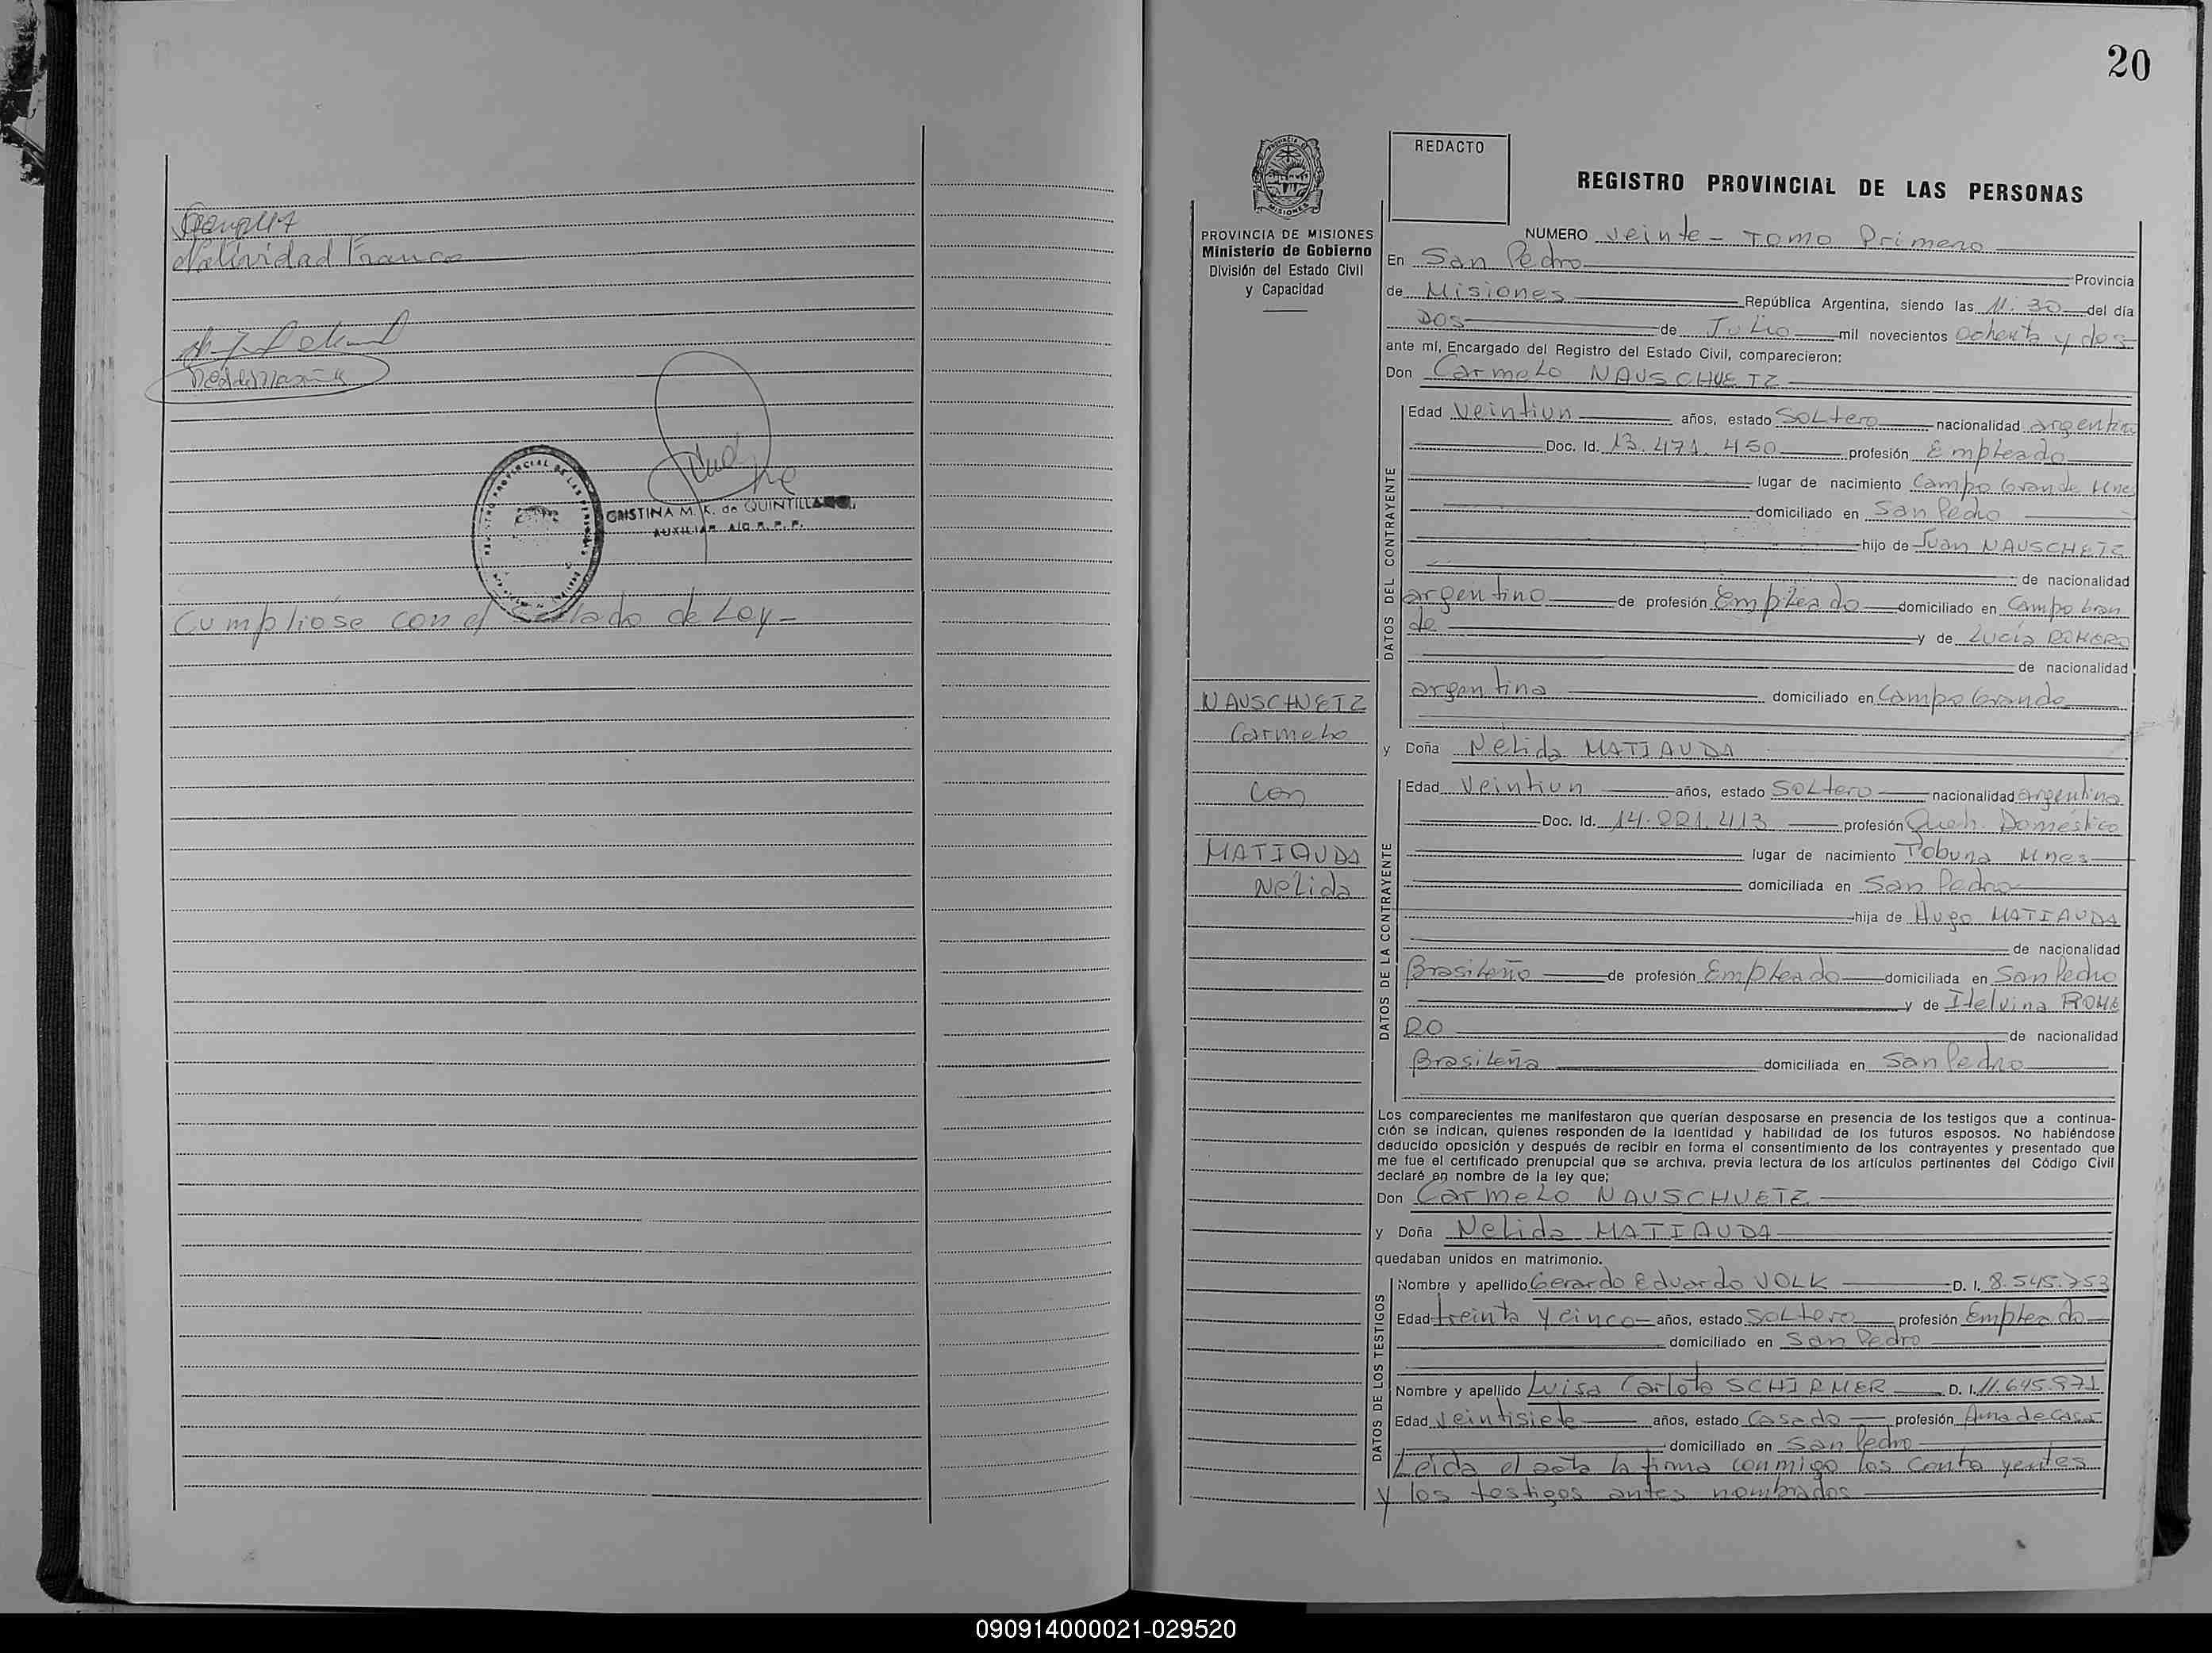 Natividad Franco
CRISTINA M. K. de QUINTILLA
AUXILIAR A/C R. P. P.
Cumplióse con el sellado de Ley-
20
REDACTO
REGISTRO PROVINCIAL DE LAS PERSONAS
PROVINCIA DE MISIONES
Ministerio de Gobierno
División del Estado Civil
y Capacidad
NUMERO veinte - Tomo Primero
En San Pedro Provincia
de Misiones República Argentina, siendo las 11.30 del día
DOS de Julio mil novecientos ochenta y dos
ante mí, Encargado del Registro del Estado Civil, comparecieron:
Don Carmelo NAUSCHUETZ
DATOS DEL CONTRAYENTE
Edad Veintiun años, estado Soltero nacionalidad argentina
Doc. Id. 13.471.450 profesión Empleado
lugar de nacimiento Campo Grande Mnes
domiciliado en San Pedro
hijo de Juan NAUSCHETZ
de nacionalidad
argentino de profesión Empleado domiciliado en Campo Gran
de y de Lucía ROMERO
de nacionalidad
argentina domiciliado en Campo Grande
NAUSCHUETZ
Carmelo
con
MATIAUDA
Nelida
y Doña Nelida MATIAUDA
DATOS DE LA CONTRAYENTE
Edad Veintiun años, estado Soltero nacionalidad argentina
Doc. Id. 14.221.413 profesión Queh. Doméstico
lugar de nacimiento Tobuna Mnes
domiciliada en San Pedro
hija de Hugo MATIAUDA
de nacionalidad
Brasileño de profesión Empleado domiciliada en San Pedro
y de Itelvina ROME
RO de nacionalidad
Brasileña domiciliada en San Pedro
Los comparecientes me manifestaron que querían desposarse en presencia de los testigos que a continua-
ción se indican, quienes responden de la identidad y habilidad de los futuros esposos. No habiéndose
deducido oposición y después de recibir en forma el consentimiento de los contrayentes y presentado que
me fue el certificado prenupcial que se archiva, previa lectura de los artículos pertinentes del Código Civil
declaré en nombre de la ley que;
Don Carmelo NAUSCHUETZ
y Doña Nelida MATIAUDA
quedaban unidos en matrimonio.
DATOS DE LOS TESTIGOS
Nombre y apellido Gerardo Eduardo VOLK D. I. 8.545.753
Edad treinta y cinco años, estado soltero profesión Empleado
domiciliado en San Pedro
Nombre y apellido Luisa Carlota SCHIRMER D. I. 11.645.971
Edad Veintisiete años, estado Casado profesión Ama de casa
domiciliado en San Pedro
Leída el acta la firma conmigo los contrayentes
y los testigos antes nombrados
090914000021-029520